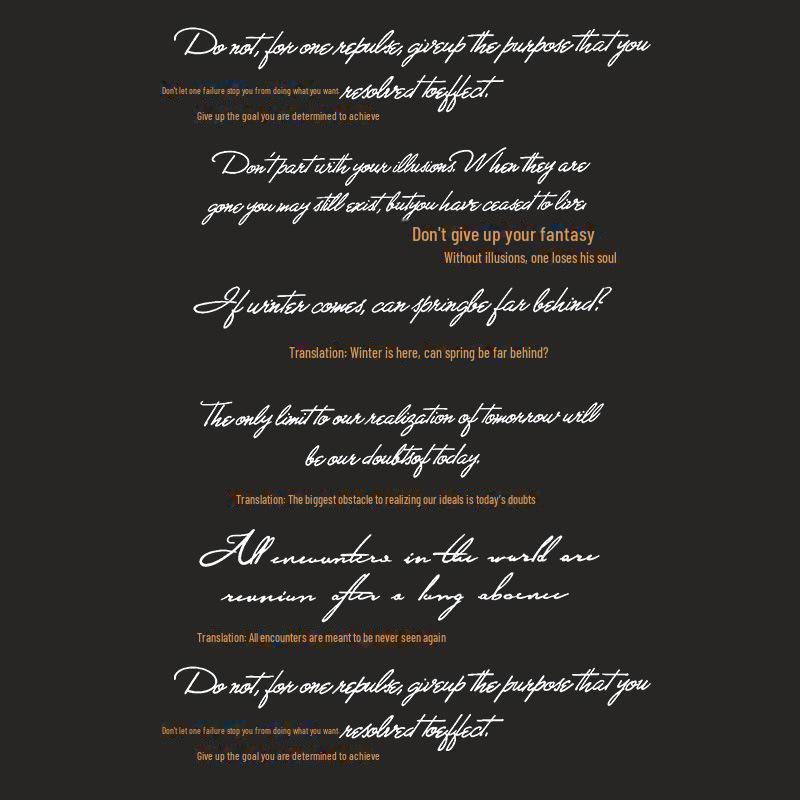 Do not, for one repulse, giveup the purpose that you
resolved toeffect.
Don't let one failure stop you from doing what you want
Give up the goal you are determined to achieve
Don't part with your illusions. When they are
gone you may still exist, butyou have ceased to live.
Don't give up your fantasy
Without illusions, one loses his soul
If winter comes, can springbe far behind?
Translation: Winter is here, can spring be far behind?
The only limit to our realization of tomorrow will
be our doubtsof today.
Translation: The biggest obstacle to realizing our ideals is today's doubts
All encounters in the world are
reunion after a long absence
Translation: All encounters are meant to be never seen again
Do not, for one repulse, giveup the purpose that you
resolved toeffect.
Don't let one failure stop you from doing what you want
Give up the goal you are determined to achieve